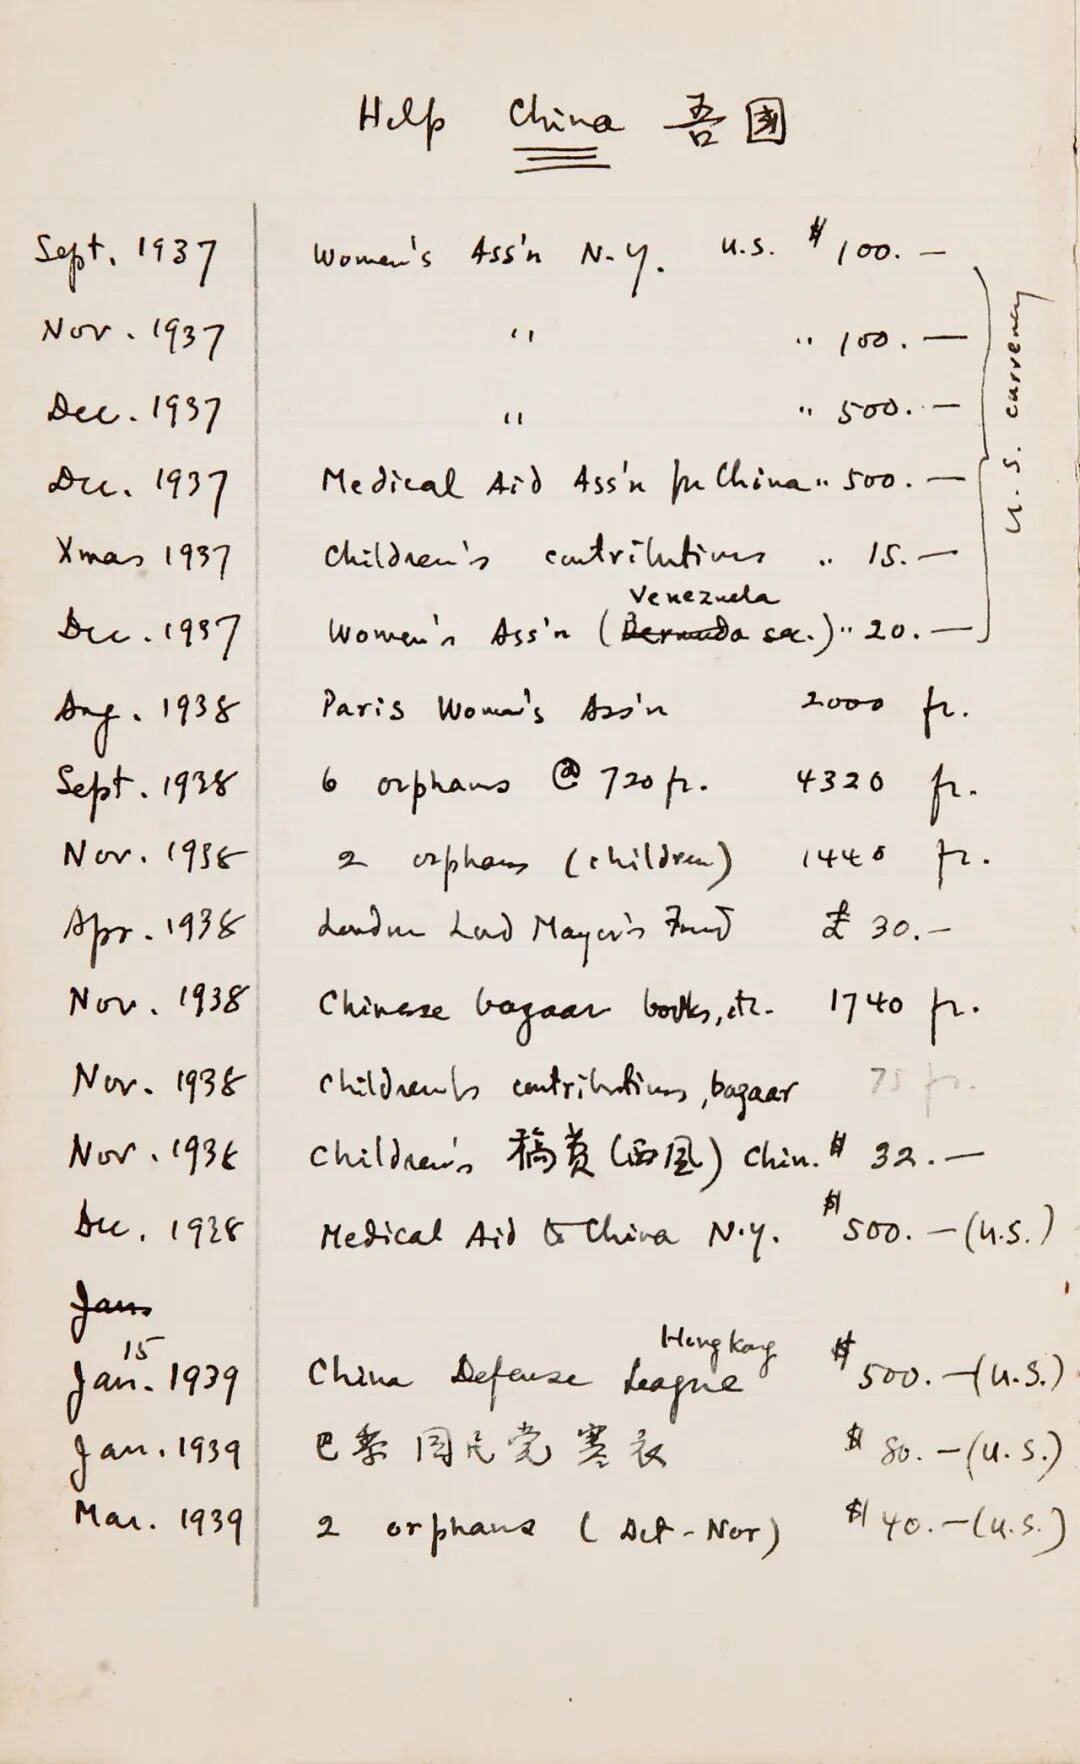 Help China 吾國
Sept. 1937 Women's Ass'n N.Y. U.S. $ 100.—
Nov. 1937 " " 100.—
Dec. 1937 " " 500.—
Dec. 1937 Medical Aid Ass'n for China " 500.—
Xmas 1937 Children's contributions " 15.—
Venezuela
Dec. 1937 Women's Ass'n (Bermuda sec.) " 20.—
U.S. currency
Aug. 1938 Paris Women's Ass'n 2000 fr.
Sept. 1938 6 orphans @ 720 fr. 4320 fr.
Nov. 1938 2 orphans (children) 1440 fr.
Apr. 1938 London Lord Mayor's Fund £ 30.—
Nov. 1938 Chinese bazaar books, etc. 1740 fr.
Nov. 1938 Children's contributions, bazaar 75 fr.
Nov. 1938 Children's 稿費 (西風) Chin. $ 32.—
Dec. 1938 Medical Aid to China N.Y. $ 500.—(U.S.)
Jan.
15 Hongkong
Jan. 1939 China Defense League $ 500.—(U.S.)
Jan. 1939 巴黎國民党寒衣 $ 80.—(U.S.)
Mar. 1939 2 orphans ( - Nov) $ 40.—(U.S.)